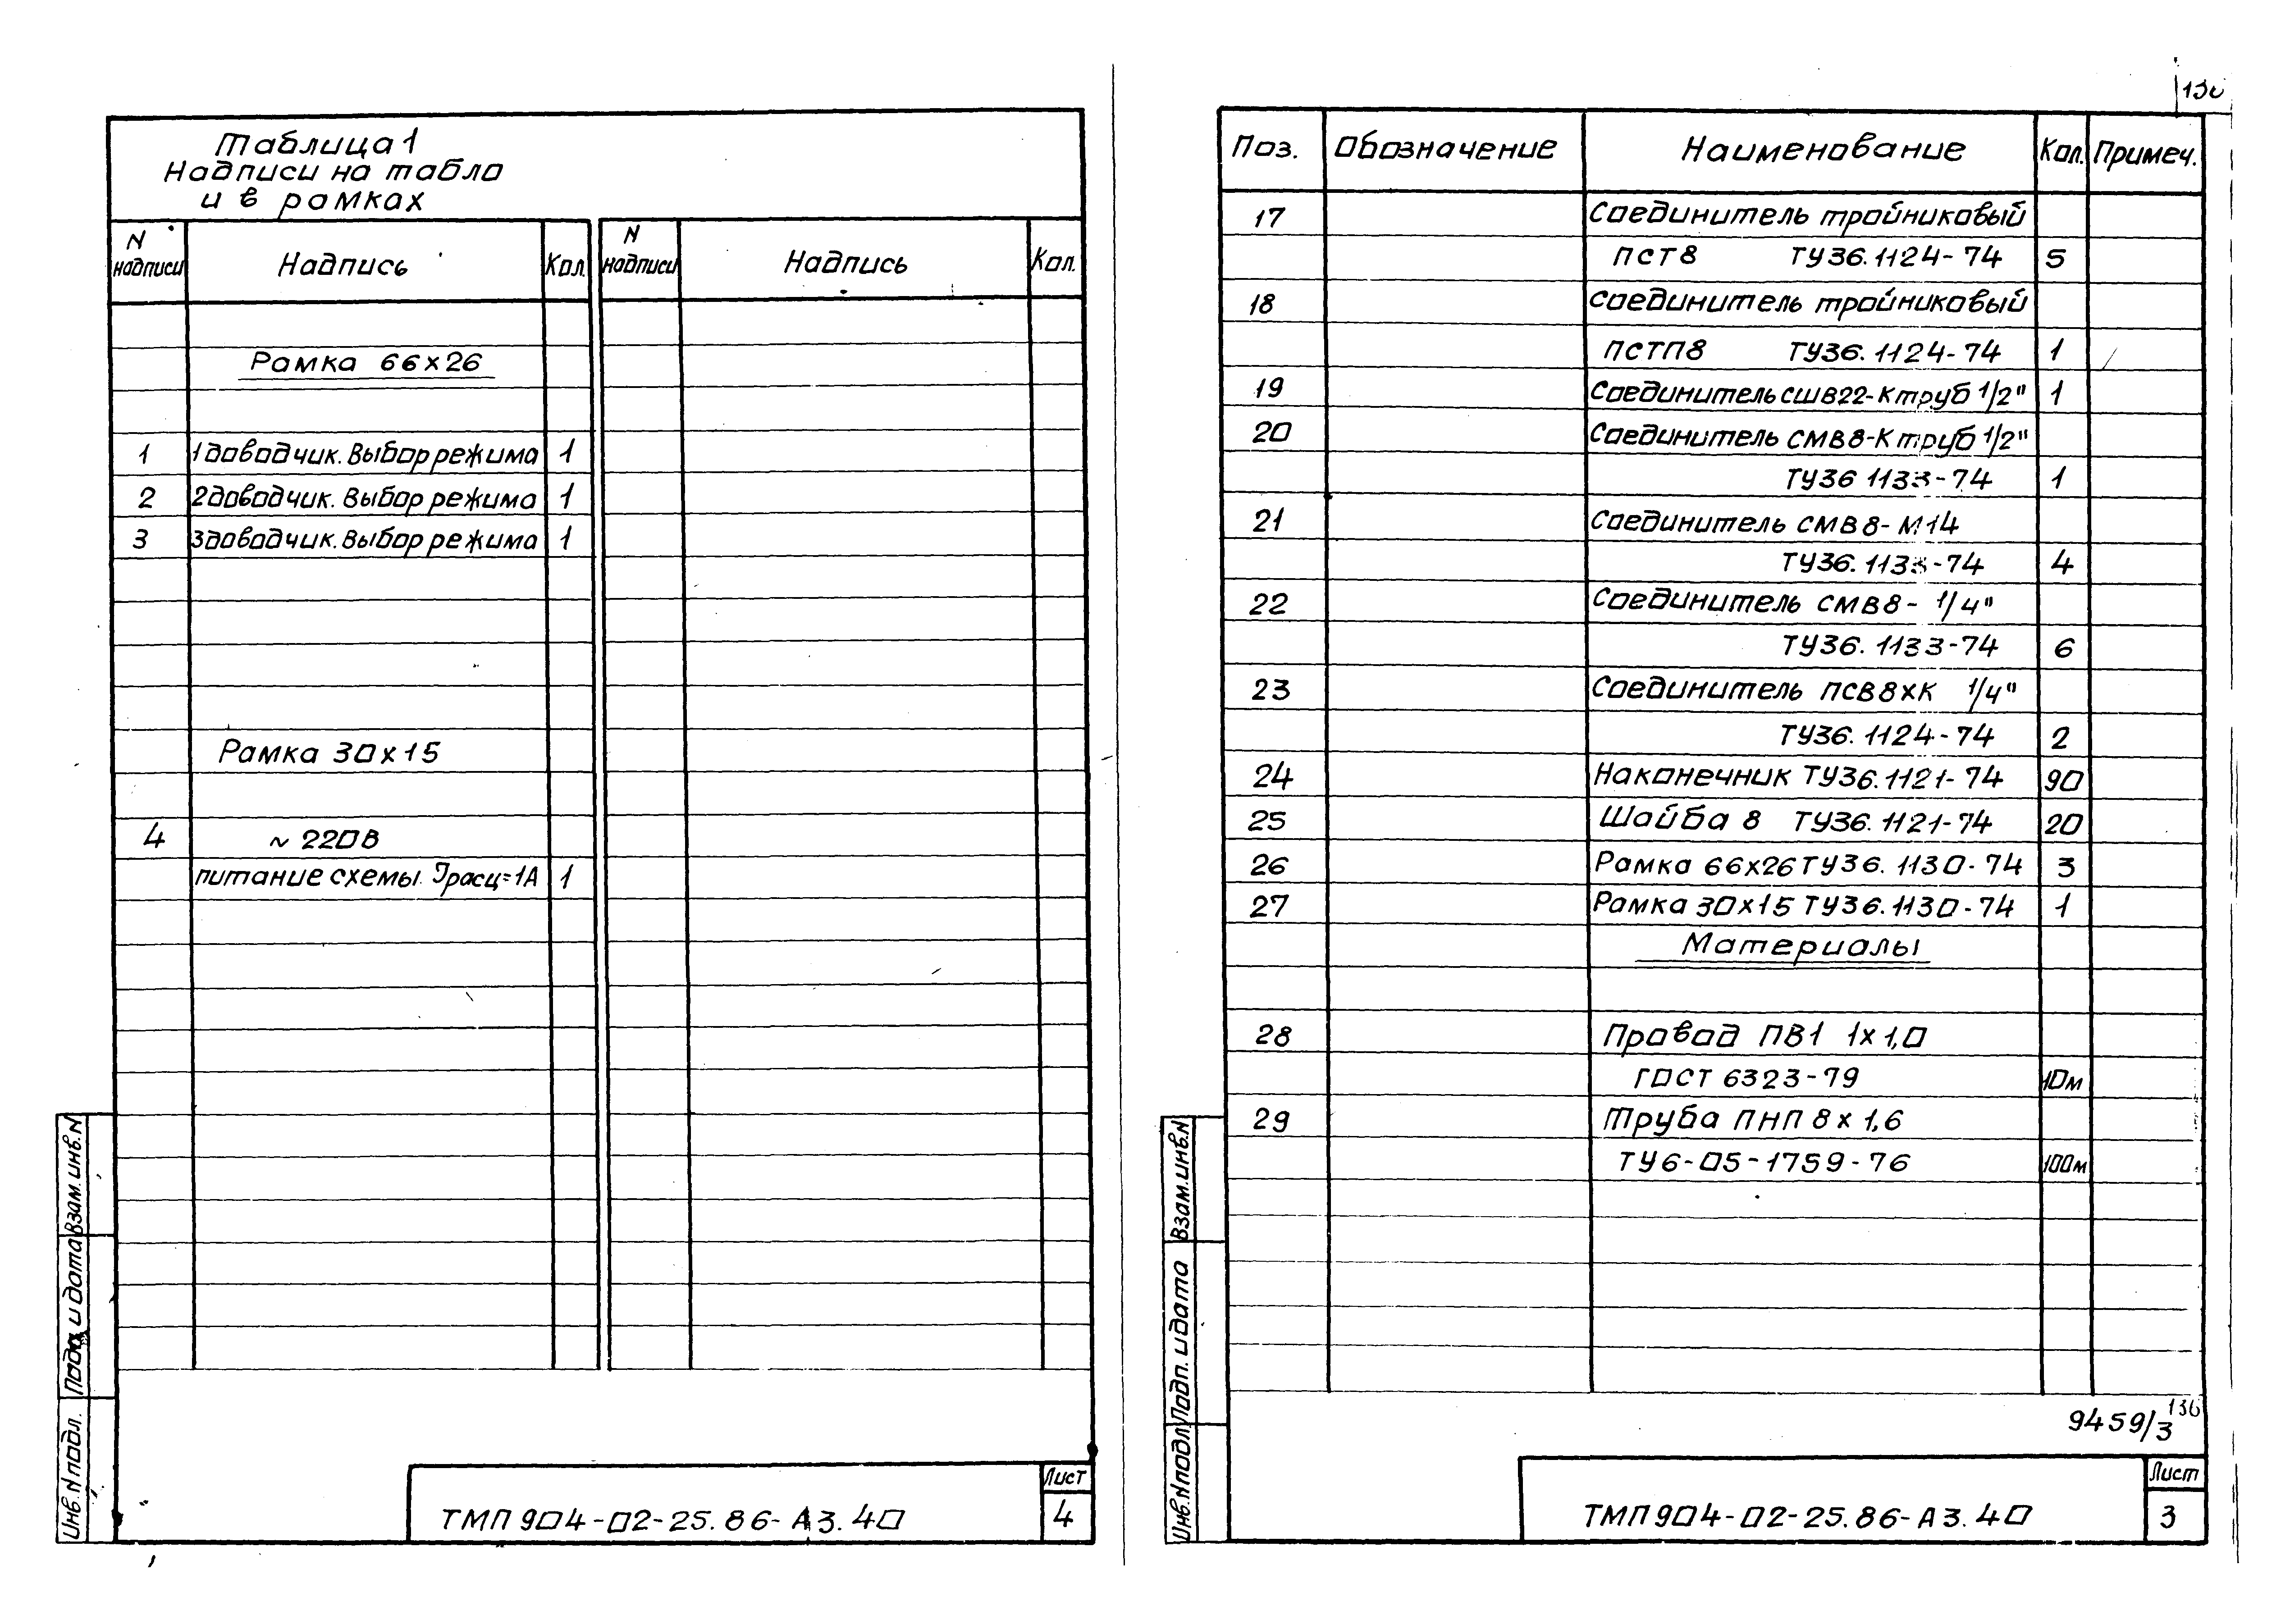 Таблица 1
Надписи на табло
и в рамках
N надписи Надпись Кол. N надписи Надпись Кол.
Рамка 66х26
1 1доводчик. Выбор режима 1
2 2доводчик. Выбор режима 1
3 3доводчик. Выбор режима 1
Рамка 30х15
4 ~ 220В
питание схемы. Iрасц=1А 1
Взам. инв. N
Подп. и дата
Инв. N подл.
ТМП904-02-25.86-А3.40
Лист
4
Поз. Обозначение Наименование Кол. Примеч.
17 Соединитель тройниковый
ПСТ8 ТУ36.1124-74 5
18 Соединитель тройниковый
ПСТП8 ТУ36.1124-74 1
19 Соединитель СШВ22-К труб 1/2" 1
20 Соединитель СМВ8-К труб 1/2"
ТУ36 1133-74 1
21 Соединитель СМВ8-М14
ТУ36.1133-74 4
22 Соединитель СМВ8- 1/4"
ТУ36.1133-74 6
23 Соединитель ПСВ8ХК 1/4"
ТУ36.1124-74 2
24 Наконечник ТУ36.1121-74 90
25 Шайба 8 ТУ36.1121-74 20
26 Рамка 66х26 ТУ36.1130-74 3
27 Рамка 30х15 ТУ36.1130-74 1
Материалы
28 Провод ПВ1 1х1,0
ГОСТ 6323-79 10м
29 Труба ПНП 8х1,6
ТУ6-05-1759-76 100м
9459/3
Взам. инв. N
Подп. и дата
Инв. N подл.
ТМП904-02-25.86-А3.40
Лист
3